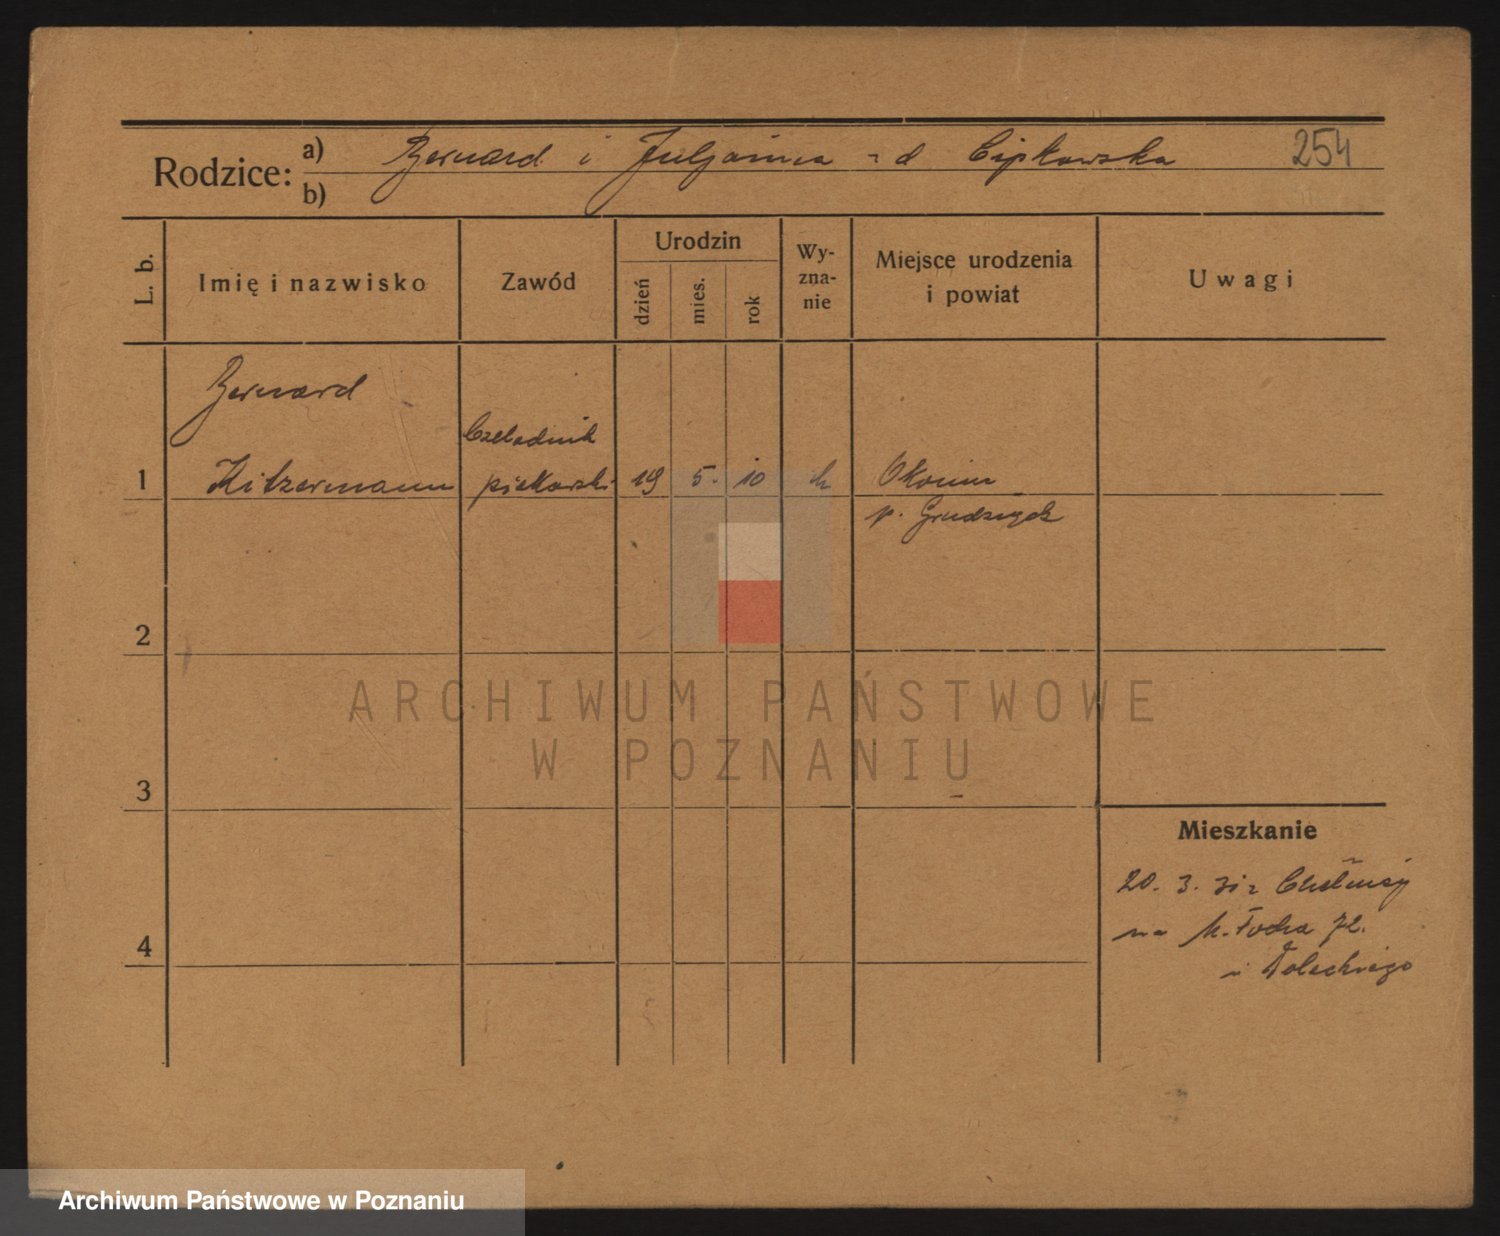 254
Rodzice: a) Bernard i Juljanna z d Cipkowska
b)
L. b.
Imię i nazwisko
Zawód
Urodzin
dzień
mies.
rok
Wy-
zna-
nie
Miejsce urodzenia
i powiat
Uwagi
Bernard
Czeladnik
1 Kitzermann piekarski 19 5. 10 k Okonin
p. Grudziądz
2
3
4
ARCHIWUM PAŃSTWOWE
W POZNANIU
Mieszkanie
20. 3. 31 z Chełmży
na M. Focha 72.
u
Archiwum Państwowe w Poznaniu